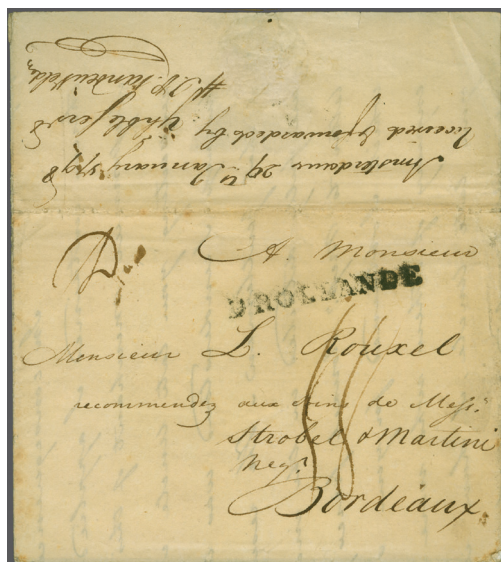 Amsterdam 29 January 1798
received & forwarded by
A Monsieur
D'HOLLANDE
Monsieur L. Rouxel
recommendez aux soins de Mess.rs
Strobel & Martini
Neg.ts
Bordeaux